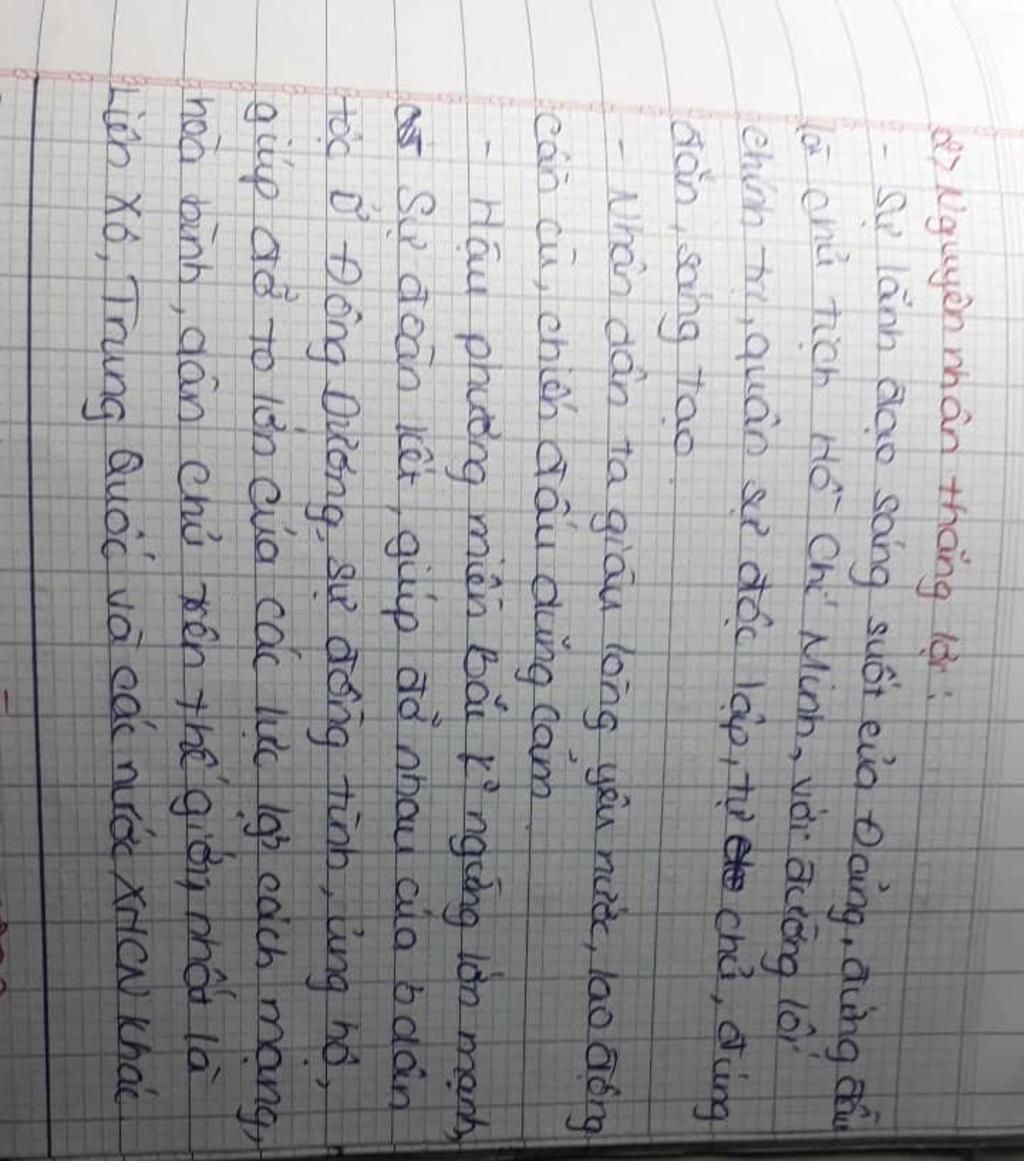 2) Nguyên nhân thắng lợi:
- Sự lãnh đạo sáng suốt của Đảng, đứng đầu
là chủ tịch Hồ Chí Minh, với đường lối
chính trị, quân sự độc lập, tự chủ, đúng
đắn, sáng tạo.
- Nhân dân ta giàu lòng yêu nước, lao động
cần cù, chiến đấu dũng cảm.
- Hậu phương miền Bắc k ngừng lớn mạnh,
Sự đoàn kết, giúp đỡ nhau của 3 dân
tộc ở Đông Dương, sự đồng tình, ủng hộ,
giúp đỡ to lớn của các lực lg cách mạng,
hoà bình, dân chủ trên thế giới, nhất là
Liên Xô, Trung Quốc và các nước XHCN khác